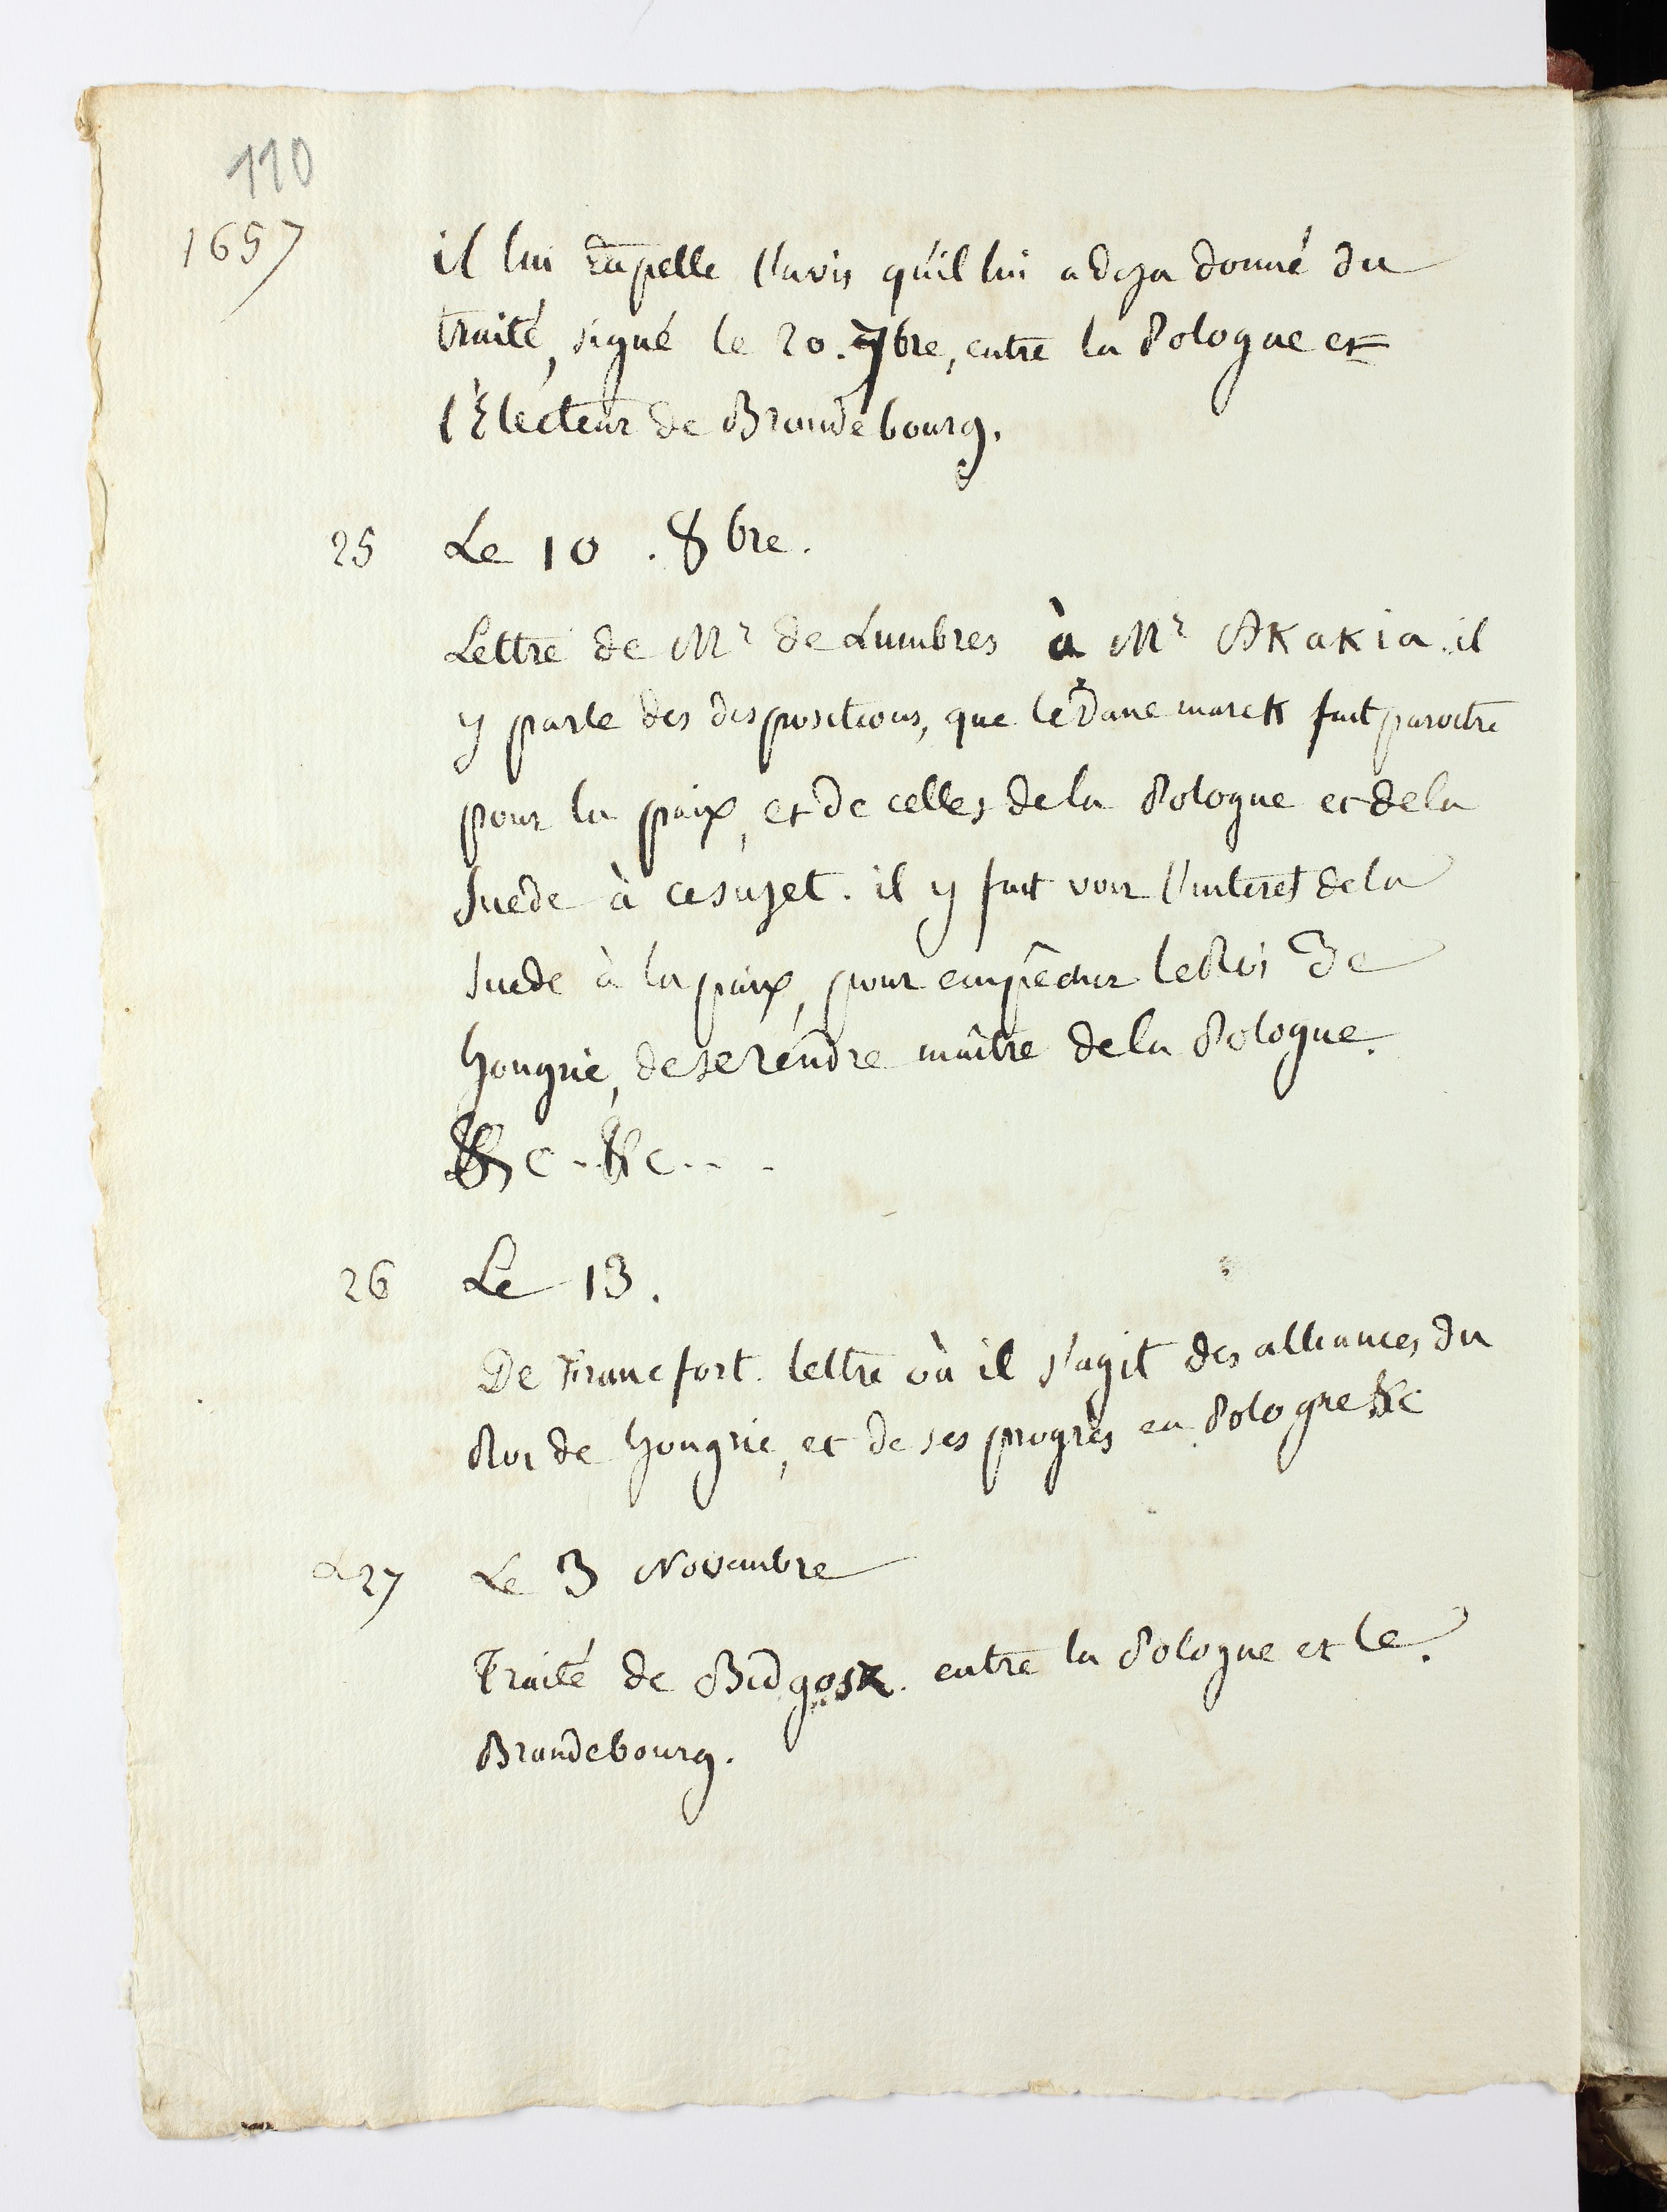 110
1657
il lui rapelle l'avis qu'il lui a deja donné du
traité, signé le 20. 7bre, entre la Pologne et
l'Electeur de Brandebourg.
25 Le 10. 8bre.
Lettre de Mr de Lumbres à Mr Akakia. il
y parle des dispositions, que le Danemarck fait paroitre
pour la paix, et de celles de la Pologne et de la
Suede à ce sujet. il y fait voir l'interet de la
Suede à la paix, pour empêcher le Roi de
Hongrie, de se rendre maître de la Pologne.
&c..&c...
26 Le 13.
De Francfort. lettre où il s'agit des alliances du
Roi de Hongrie, et de ses progrès en Pologne &c
27 Le 3 Novembre
Traité de Bidgosz. entre la Pologne et le
Brandebourg.